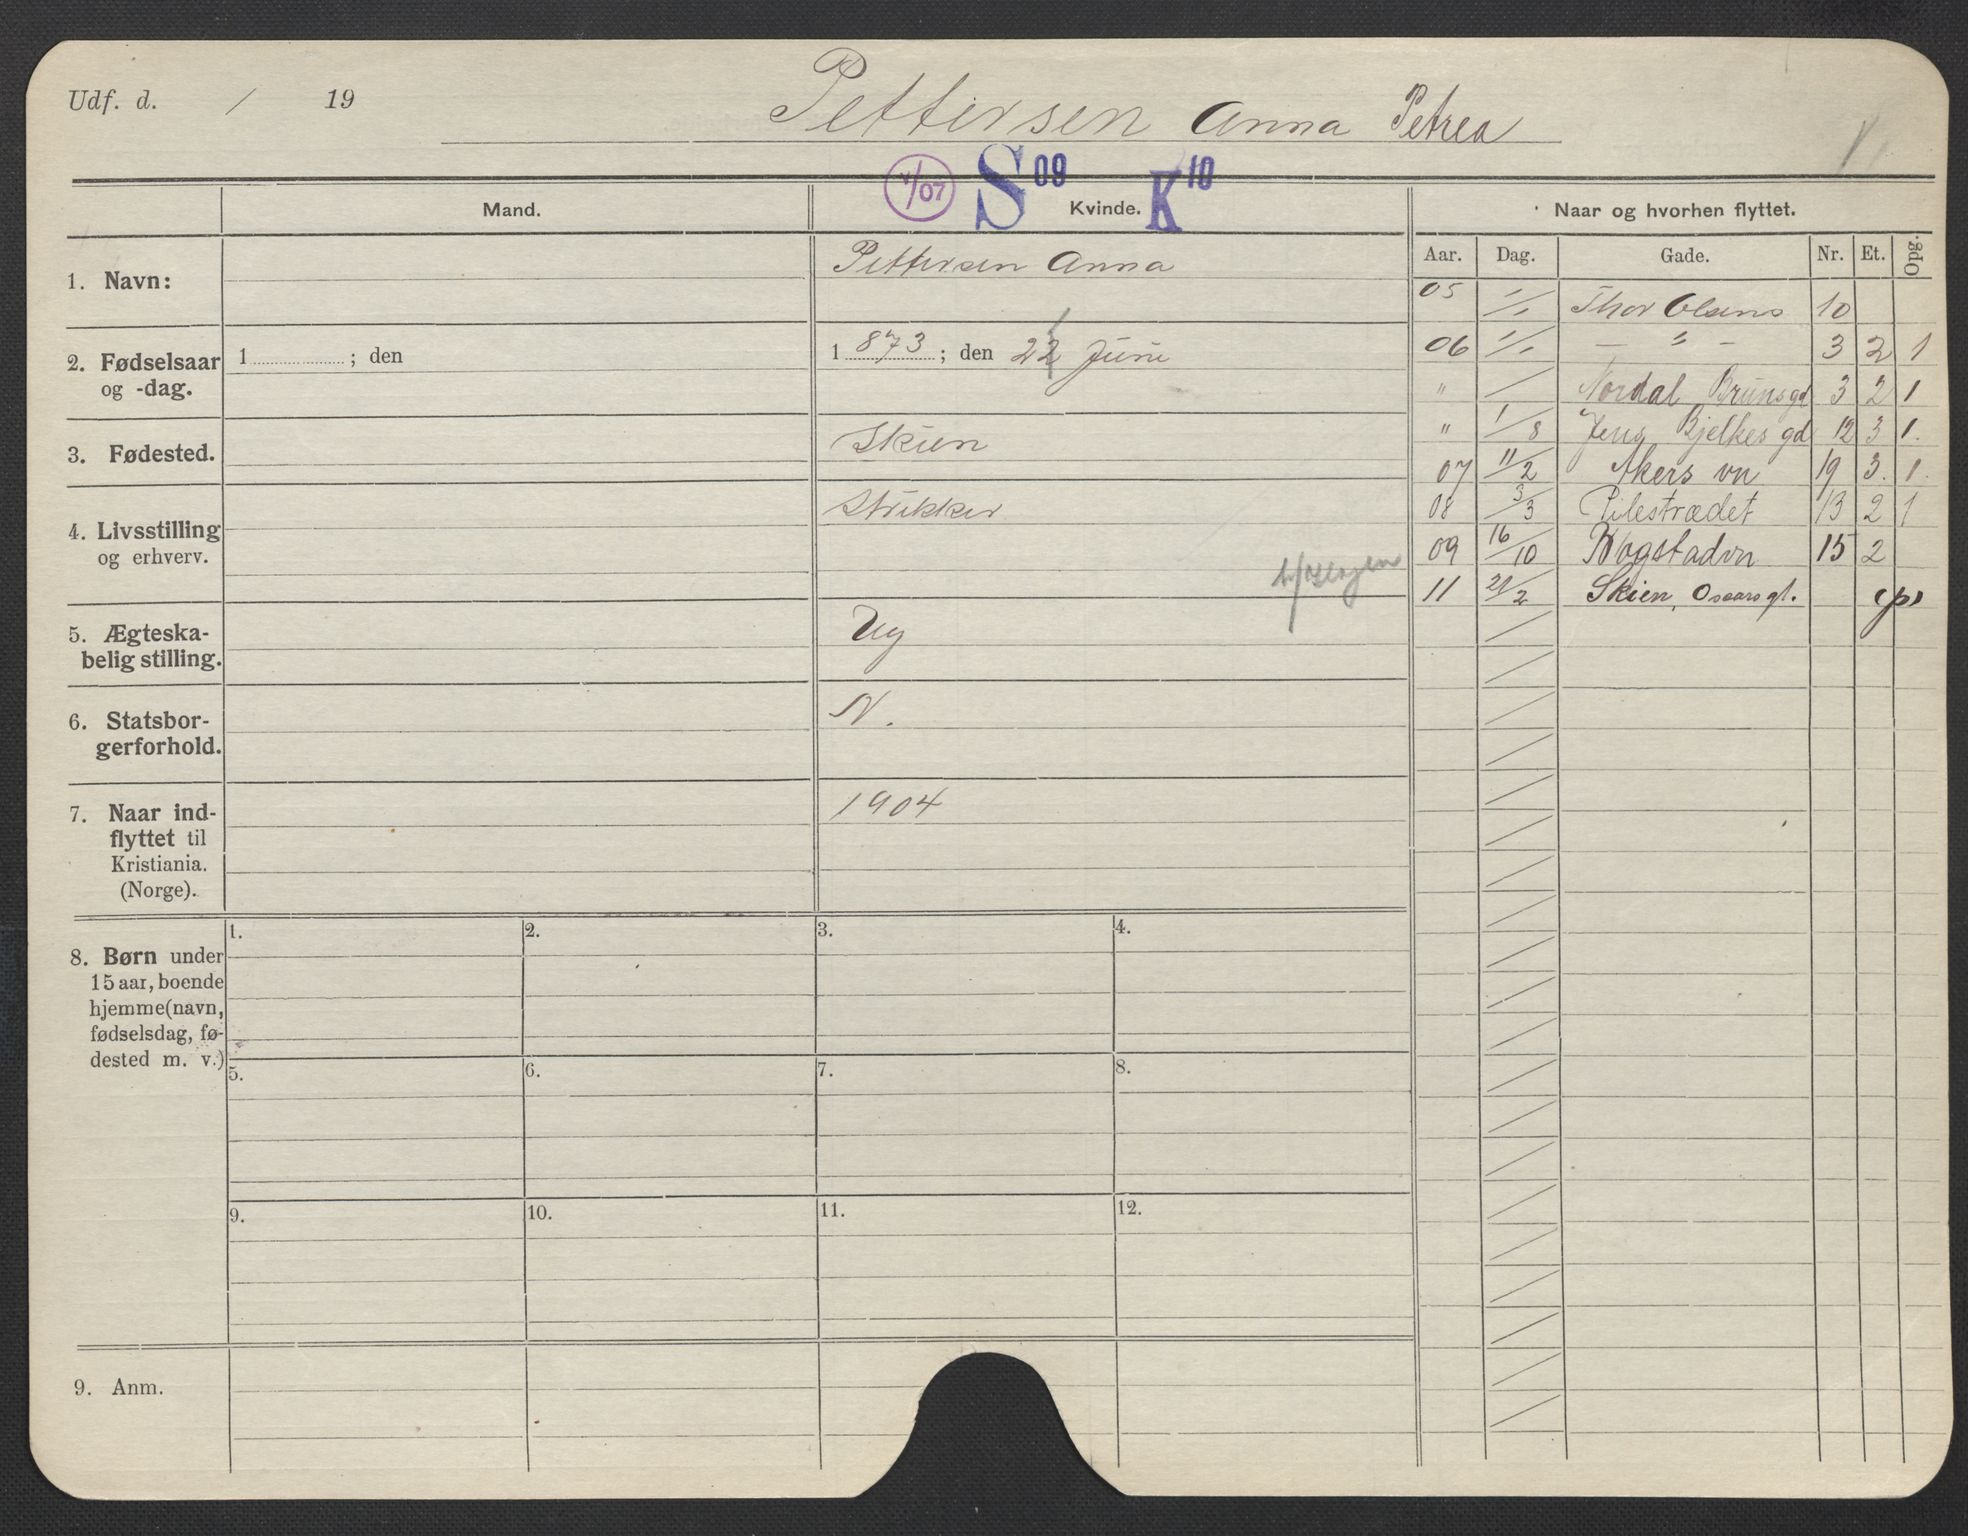 Udf. d. / 19
Pettersen Anna Petrea
V/07 S 09 K 10
Mand. Kvinde. Naar og hvorhen flyttet.
Aar. Dag. Gade. Nr. Et. Opg.
1. Navn: Pettersen Anna
2. Fødselsaar og -dag. 1 ; den 1 873 ; den 22 Juni
3. Fødested. Skien
4. Livsstilling og erhverv. Strikker
5. Ægteskabelig stilling. Ug
6. Statsborgerforhold. N.
7. Naar indflyttet til Kristiania. (Norge). 1904
05 1/1 Thor Olsens 10
06 1/1 — " — 3 2 1
" / Nordal Brunsgd 3 2 1
" 1/8 Jens Bjelkes gd 12 3 1.
07 11/2 Akers vn 19 3. 1.
08 3/3 Pilestrædet 13 2 1
09 16/10 Wogstadvn 15 2
11 21/2 Skien, Oscars gt. (p)
8. Børn under
15 aar, boende
hjemme (navn,
fødselsdag, fø-
dested m. v.)
1. 2. 3. 4.
5. 6. 7. 8.
9. 10. 11. 12.
9. Anm.